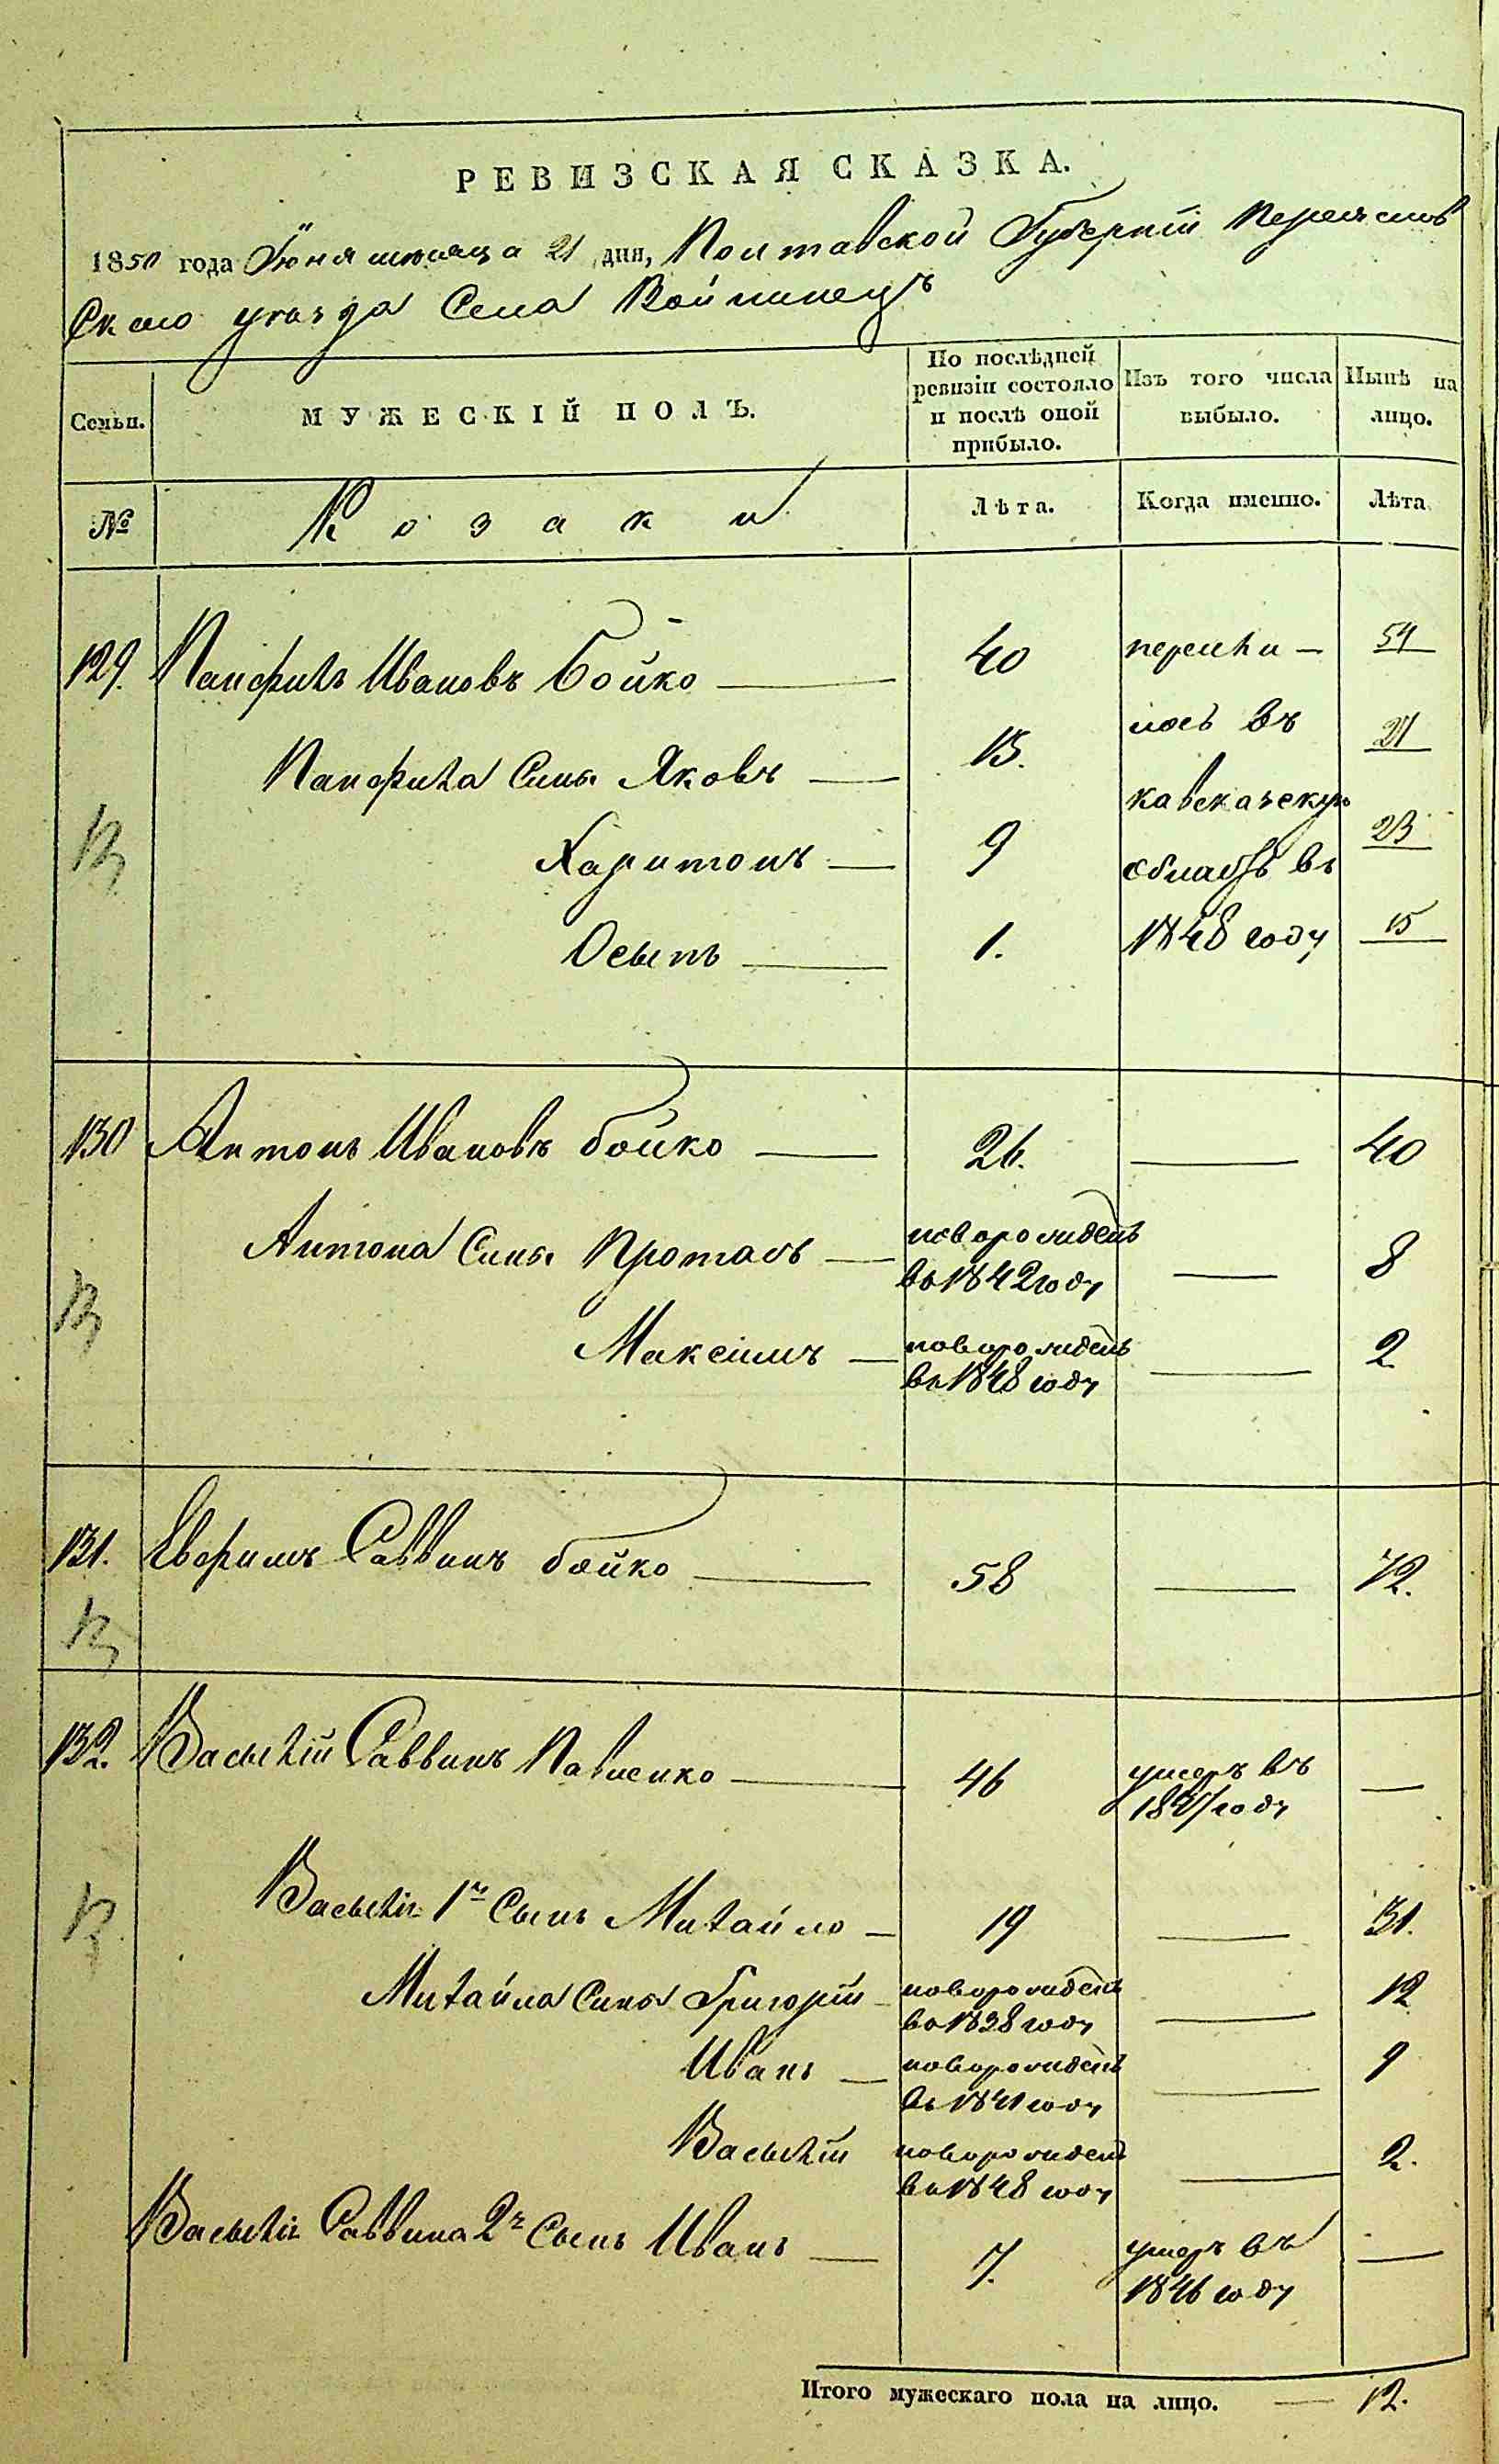 РЕВИЗСКАЯ СКАЗКА.
1850 года Іюня месяца 21 дня, Полтавской Губерніи Переяслов
Скаго уезда Села Войтинець
Семьи.
МУЖЕСКІЙ ПОЛЪ.
По послѣдней ревизіи состояло и послѣ оной прибыло.
Изъ того числа выбыло.
Нынѣ на лицо.
№
Козаки
Лѣта.
Когда именно.
Лѣта
129. Панфилъ Ивановъ Бойко — 40 пересели — 54
Панфила Синъ Яковъ — 13. лось въ 27
Харитонъ — 9 кавказскую 23
Осыпъ — 1. область въ 15
1848 году
130 Антонъ Ивановъ бойко — 26. — 40
Антона Синъ Протасъ — новорожденъ — 8
въ 1842 году
Максімъ — новорожденъ — 2
въ 1848 году
131. Евфимъ Саввинъ бойко — 58 — 72.
132. Василій Саввинъ Павленко — 46 умеръ въ —
1847 году
Василія 1й Сынъ Михайло — 19 — 31.
Михайла Синъ Григорій новорожденъ — 12
въ 1838 году
Иванъ — новорожденъ — 9
въ 1841 году
Василій новорожденъ — 2.
въ 1848 году
Василія Саввина 2й Сынъ Иванъ — 7. умеръ въ —
1846 году
Итого мужескаго пола на лицо. — 12.